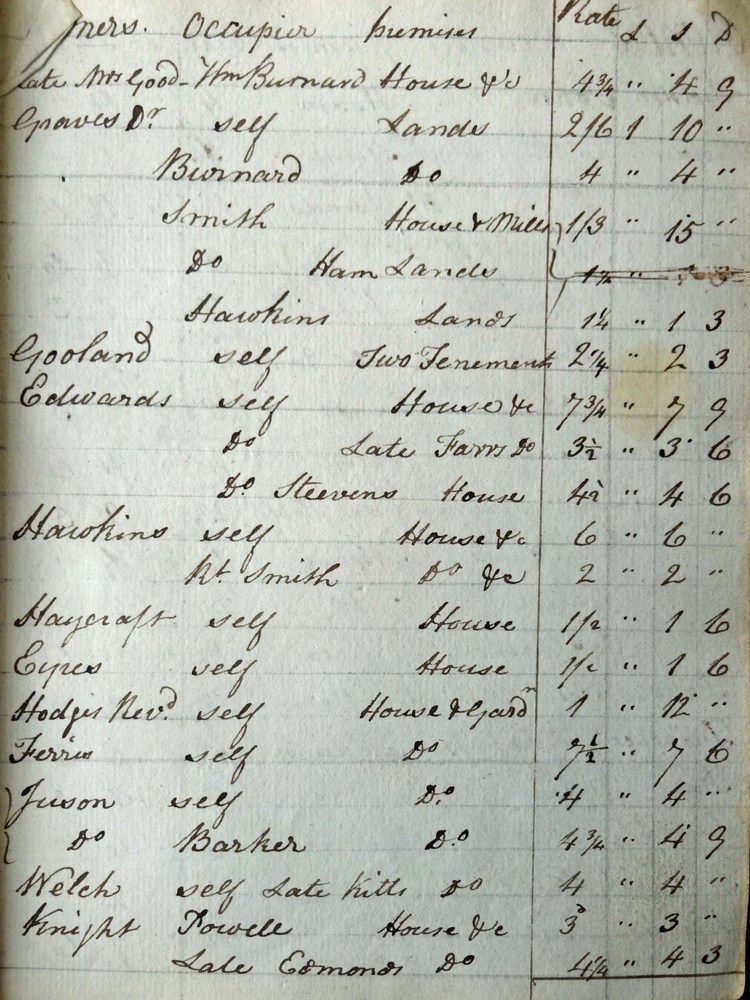 ners. Occupier Premises Rate £ s D
Late Mrs Good- Wm Burnard House &c 4¾ " 4 9
Graves Dr self Lands 2/6 1 10 "
Burnard Do 4 " 4 "
Smith House & Mills 1/3 " 15 "
Do Ham Lands 1½ "
Hawkins Lands 1¼ " 1 3
Gooland self Two Tenements 2¼ " 2 3
Edwards self House &c 7¾ " 7 9
Do Late Farrs Do 3½ " 3 6
Do Steevens House 4½ " 4 6
Hawkins self House &c 6 " 6 "
Rt Smith Do &c 2 " 2 "
Haycraft self House 1½ " 1 6
Eyres self House 1½ " 1 6
Hodges Revd self House & Gardn 1 " 12 "
Ferris self Do 7½ " 7 6
Juson self Do 4 " 4 "
Do Barker Do 4¾ " 4 9
Welch self Late Kitts Do 4 " 4 "
Knight Powell House &c 3 " 3 "
Late Edmonds Do 4¼ " 4 3